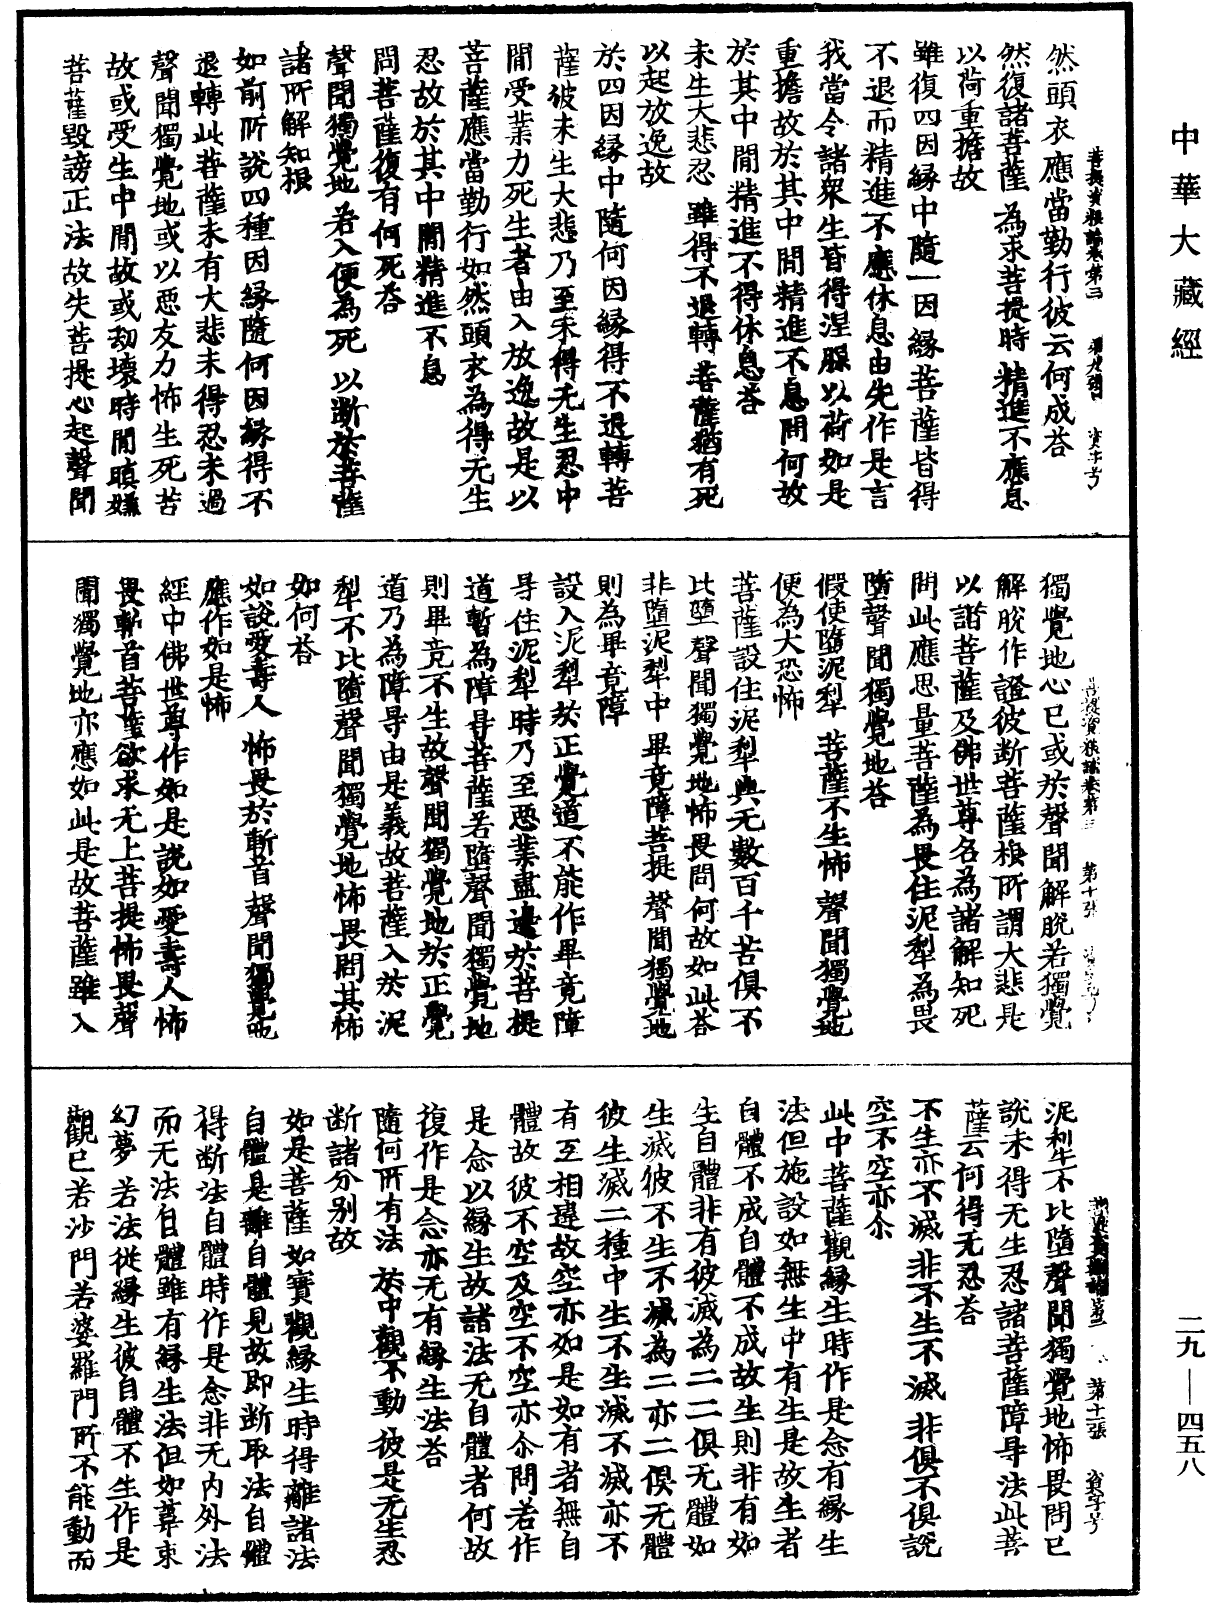 中華大藏經
菩提資糧論卷第三　第九張　資字号
然頭衣應當勤行彼云何成荅
然復諸菩薩　為求菩提時　精進不應息
以荷重擔故
雖復四因緣中隨一因緣菩薩皆得
不退而精進不應休息由先作是言
我當令諸衆生皆得涅脲以荷如是
重擔故於其中閒精進不息問何故
於其中閒精進不得休息荅
未生大悲忍　雖得不退轉　菩薩猶有死
以起放逸故
於四因緣中隨何因緣得不退轉菩
薩彼未生大悲乃至未得无生忍中
閒受業力死生者由入放逸故是以
菩薩應當勤行如然頭衣為得无生
忍故於其中閒精進不息
問菩薩復有何死荅
聲聞獨覺地　若入便為死　以斷於菩薩
諸所解知根
如前所說四種因緣隨何因緣得不
退轉此菩薩未有大悲未得忍未過
聲聞獨覺地或以惡友力怖生死苦
故或受生中閒故或劫壞時閒瞋嫌
菩薩毀謗正法故失菩提心起聲聞
菩提資糧論卷第三　第十張
獨覺地心已或於聲聞解脫若獨覺
解脫作證彼斷菩薩根所謂大悲是
以諸菩薩及佛世尊名為諸解知死
問此應思量菩薩為畏住泥犁為畏
墮聲聞獨覺地荅
假使墮泥犁　菩薩不生怖　聲聞獨覺地
便為大恐怖
菩薩設住泥犁與无數百千苦俱不
比墮聲聞獨覺地怖畏問何故如此荅
非墮泥犁中　畢竟障菩提　聲聞獨覺地
則為畢竟障
設入泥犁於正覺道不能作畢竟障
㝵住泥犁時乃至惡業盡邊於菩提
道暫為障㝵菩薩若墮聲聞獨覺地
則畢竟不生故聲聞獨覺地於正覺
道乃為障㝵由是義故菩薩入於泥
犁不比墮聲聞獨覺地怖畏問其怖
如何荅
如說愛壽人　怖畏於斬首　聲聞獨覺地
應作如是怖
經中佛世尊作如是說如愛壽人怖
畏斬首菩薩欲求无上菩提怖畏聲
聞獨覺地亦應如此是故菩薩雖入
菩提資糧論卷第三　第十一張　資字号
泥犁不比墮聲聞獨覺地怖畏問已
說未得无生忍諸菩薩障㝵法此菩
薩云何得无忍荅
不生亦不滅　非不生不滅　非俱不俱說
空不空亦尒
此中菩薩觀緣生時作是念有緣生
法但施設如無生中有生是故生者
自體不成自體不成故生則非有如
生自體非有彼滅為二二俱无體如
生滅彼不生不滅為二亦二俱无體
彼生滅二種中生不生滅不滅亦不
有互相違故空亦如是如有者無自
體故彼不空及空不空亦尒問若作
是念以緣生故諸法无自體者何故
復作是念亦无有緣生法荅
隨何所有法　於中觀不動　彼是无生忍
斷諸分別故
如是菩薩如實觀緣生時得離諸法
自體是離自體見故即斷取法自體
得斷法自體時作是念非无內外法
而无法自體雖有緣生法但如葦束
幻夢若法從緣生彼自體不生作是
觀已若沙門若婆羅門所不能動而
二九—四五八